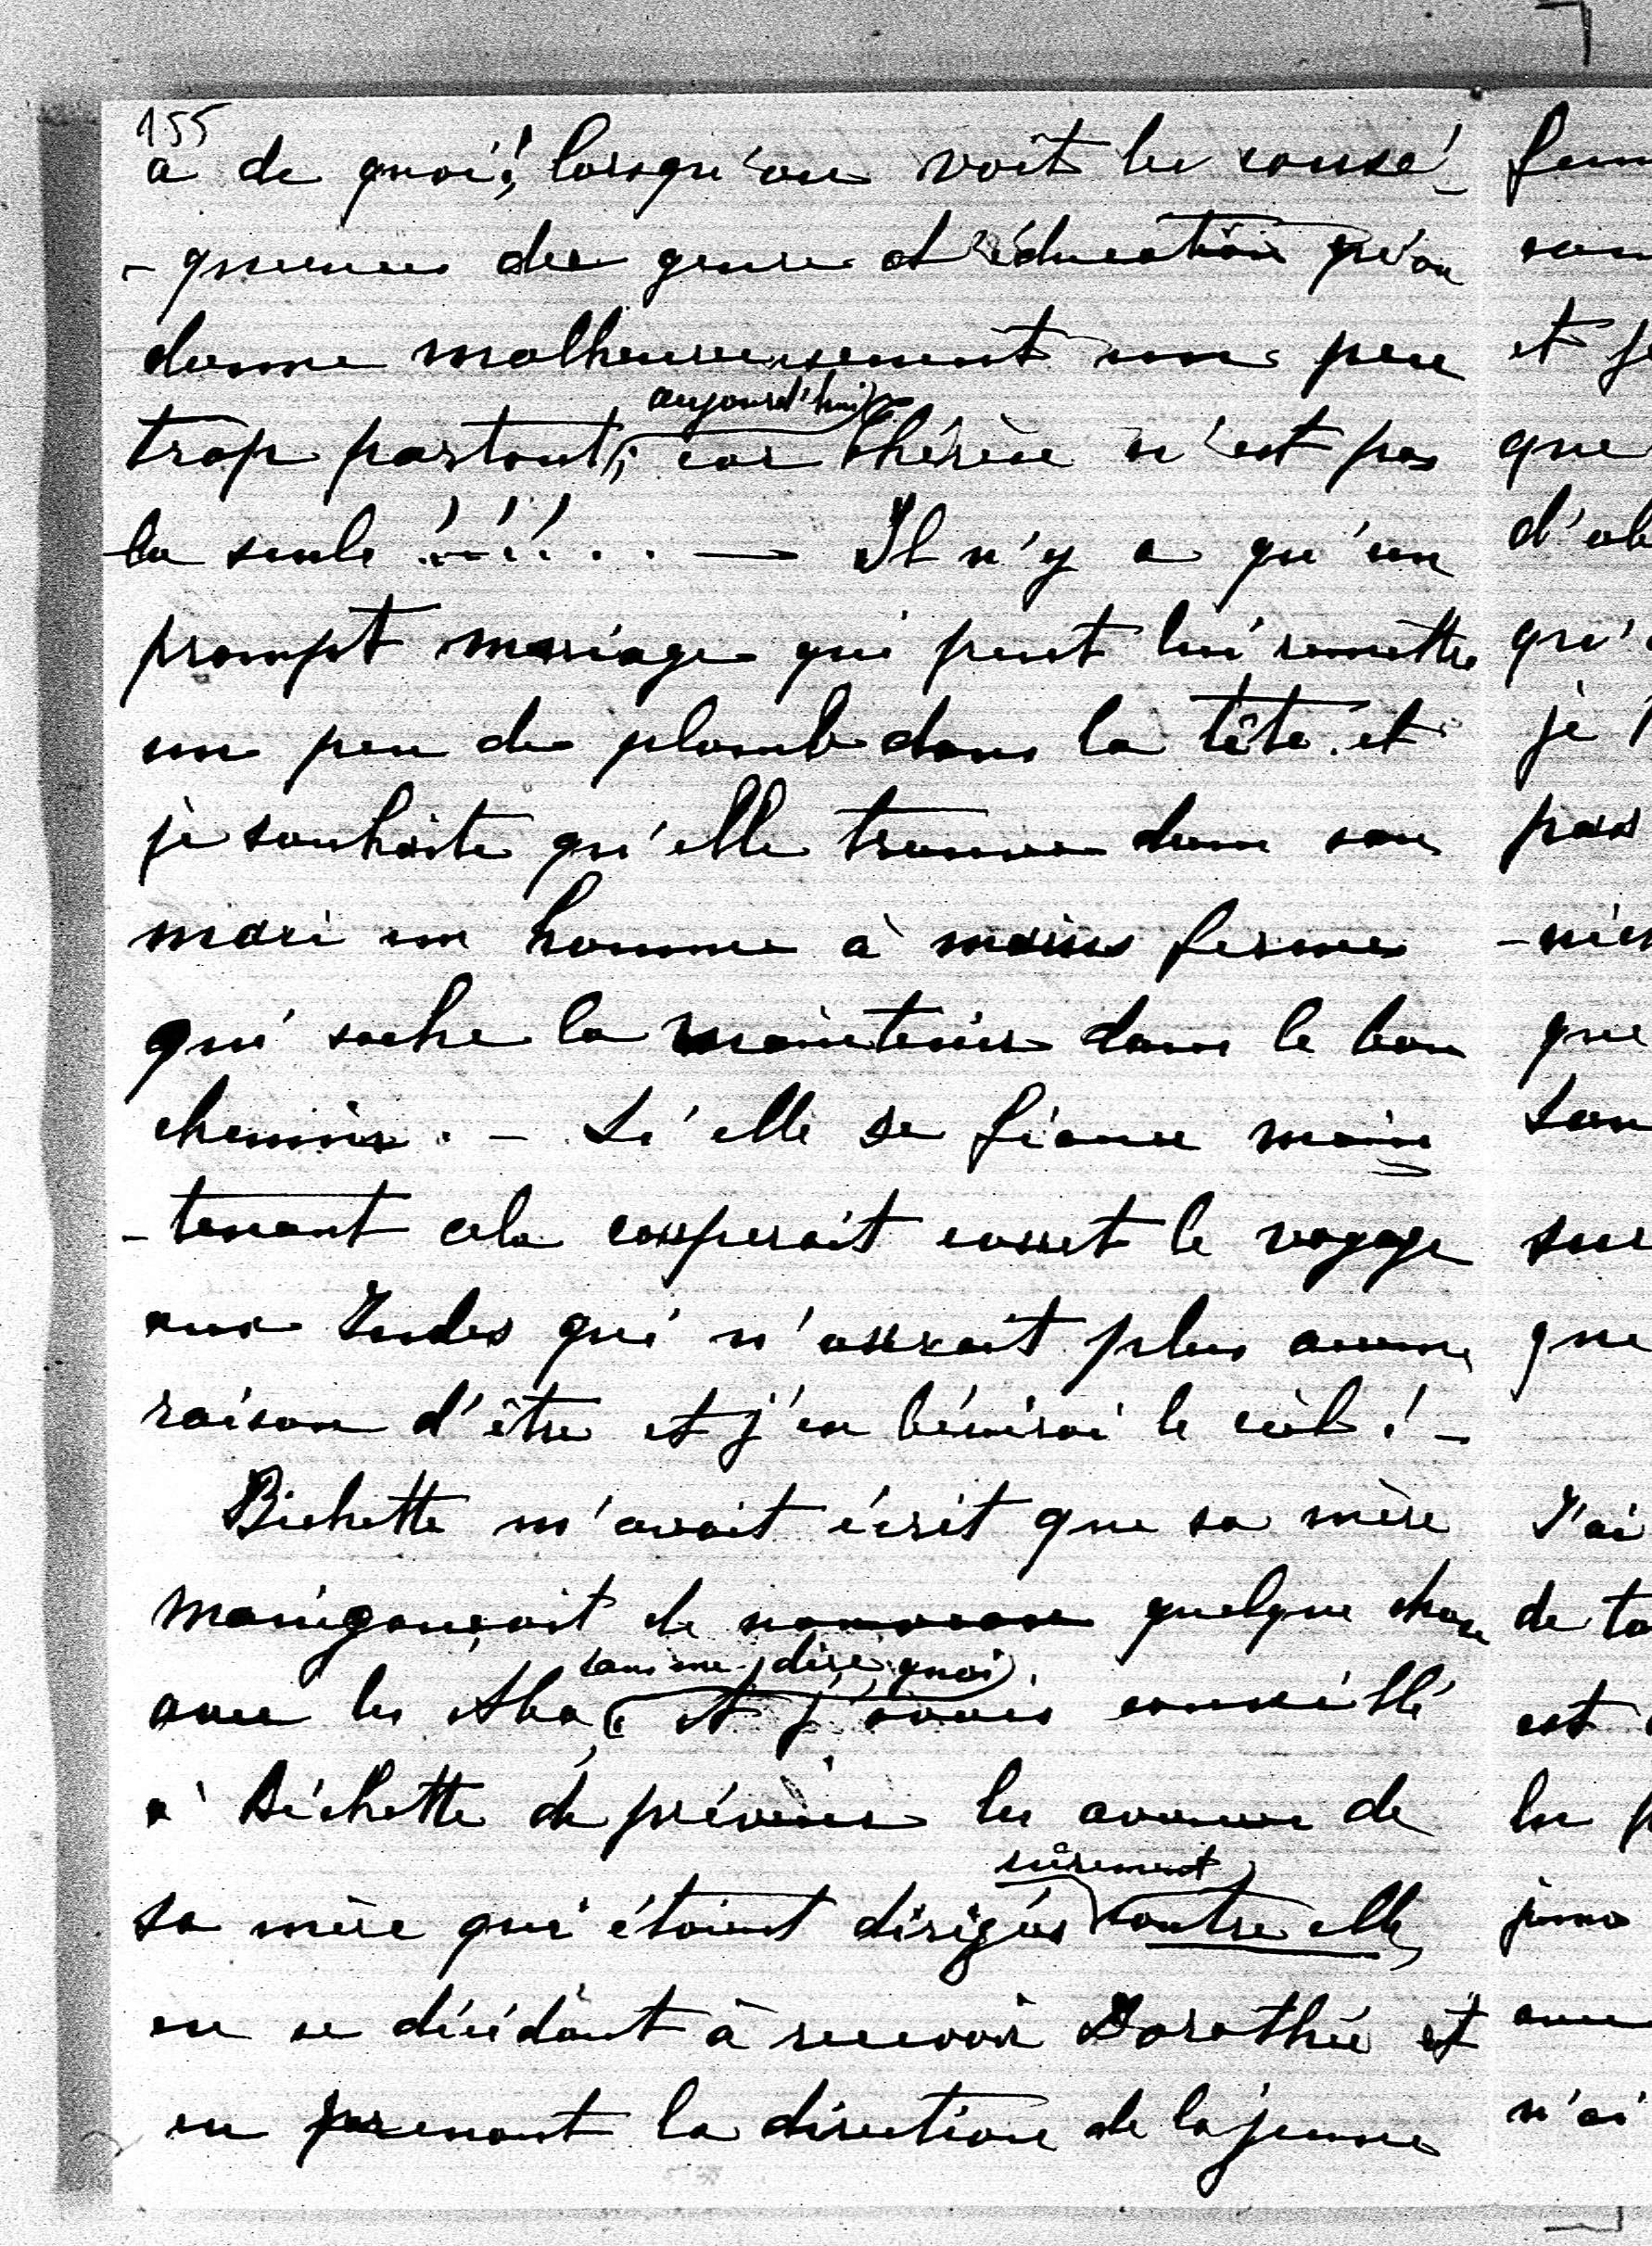 155
a de quoi! lorsqu'on voit les consé-
-quences des genre d'éducation qu'on
donne malheureusement un peu
aujourd'hui
trop partout; car Thérèse n'est pas
la seule !!!.. — Il n'y a qu'un
prompt mariage qui peut lui remettre
un peu de plomb dans la tête et
je souhaite qu'elle trouve dans son
mari un homme à mains fermes
qui sache la maintenir dans le bon
chemin. - Si elle se fiance main
-tenant cela couperait court le voyage
aux Indes qui n'aurait plus aucune
raison d'être et j'en bénirai le ciel! -
Bichette m'avait écrit que sa mère
manigançait de nouveau quelque chose
sans me dire quoi
avec les et j'avais conseillé
à Bichette de prévenir les de
sûrement
sa mère qui étaient dirigés contre elle,
en se décidant à recevoir Dorothée et
en prenant la direction de la jeune
fem
et je
que
d'ob
qu'
je
pas
que
son
sur
que
J'ai
de to
est
les p
avec
n'ai